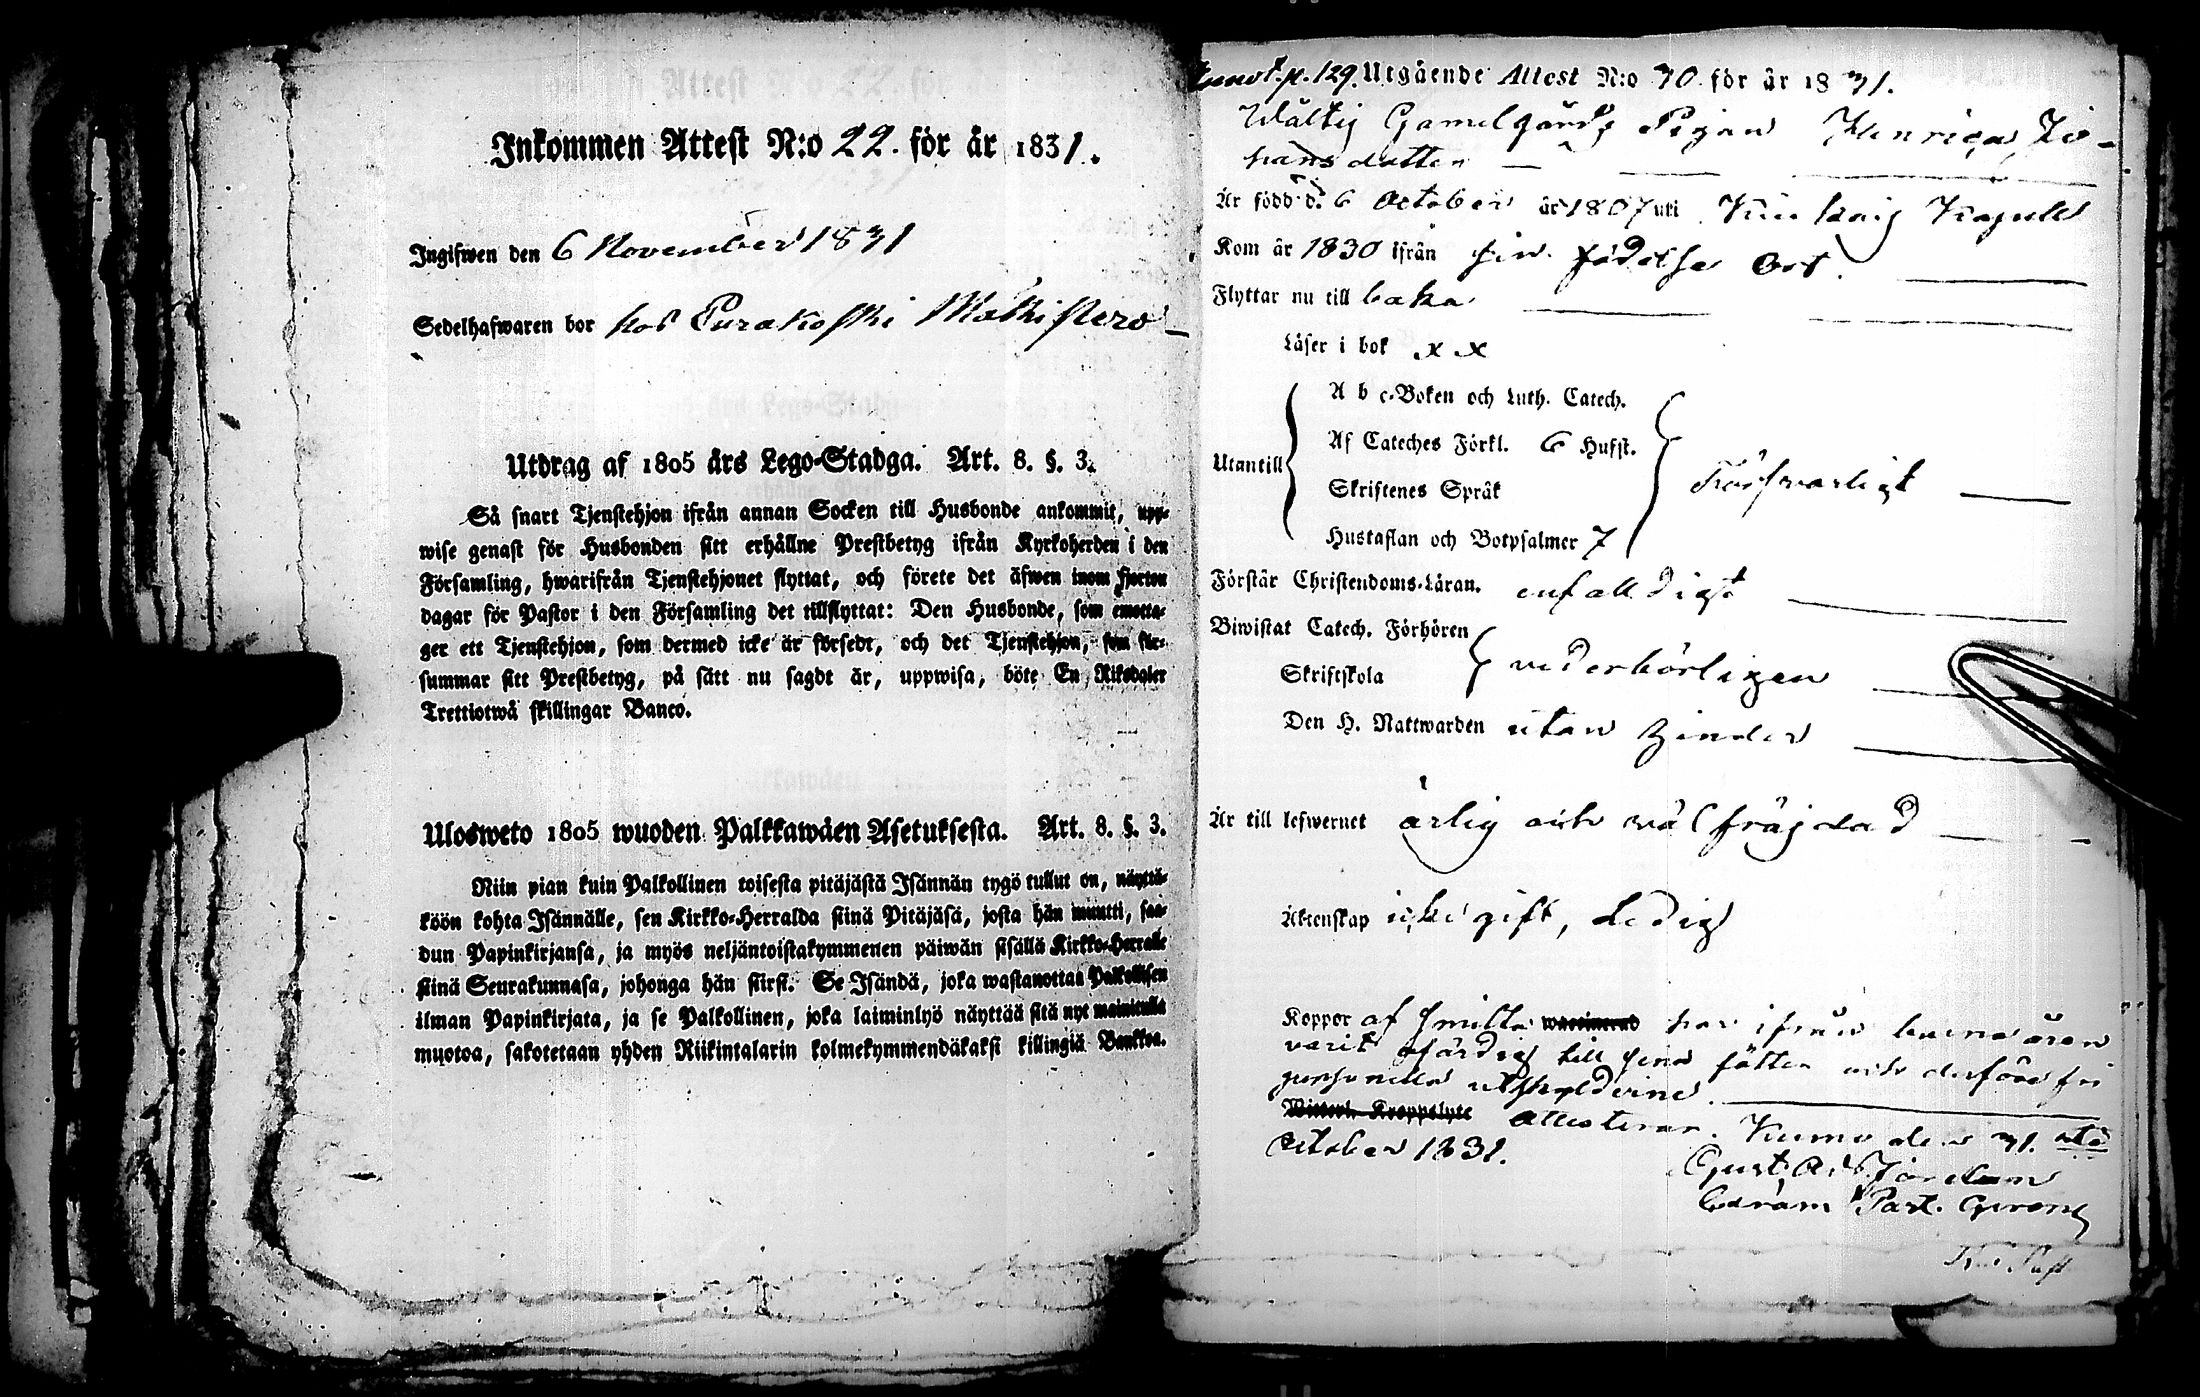 Inkommen Attest N:o 22. för år 1831.
Ingifwen den 6 November 1831
Sedelhafwaren bor hos Purakoski
Utdrag af 1805 års Lego-Stadga. Art. 8. §. 3.
Så snart Tjenstehjon ifrån annan Socken till Husbonde ankommit, upp-
wise genast för Husbonden sitt erhållne Prestbetyg ifrån Kyrkoherden i den
Församling, hwarifrån Tjenstehjonet flyttat, och förete det äfwen inom fjorton
dagar för Pastor i den Församling det tillflyttat: Den Husbonde, som emotta-
ger ett Tjenstehjon, som dermed icke är försedt, och det Tjenstehjon, som för-
summar sitt Prestbetyg, på sätt nu sagdt är, uppwisa, böte En Riksdaler
Trettiotwå skillingar Banco.
Ulosweto 1805 wuoden Palkkawäen Asetuksesta. Art. 8. §. 3.
Niin pian kuin Palkollinen toisesta pitäjästä Isännän tygö tullut on, näyttä-
köön kohta Isännälle, sen Kirkko-Herralda siinä Pitäjäsä, josta hän muutti, saa-
dun Papinkirjansa, ja myös neljäntoistakymmenen päiwän sisällä Kirkko-Herralle
siinä Seurakunnasa, johonga hän siirsi. Se Isändä, joka wastanottaa Palkollisen
ilman Papinkirjata, ja se Palkollinen, joka laiminlyö näyttää sitä nyt mainitulla
muotoa, sakotetaan yhden Riikintalarin kolmekymmendäkaksi killingiä Bankkoa.
Annot. p. 129. Utgående Attest N:o 70 för år 1831.
Wältij Gamelgårds Pigan Henrica Jo-
hans dotter
Är född d. 6 October år 1807 uti Kapell
Kom år 1830 ifrån sin födelse Ort.
Flyttar nu till baka
Läser i bok x x
A b c-Boken och Luth. Catech.
Af Cateches Förkl. 6 Hufst.
Utantill
Skriftenes Språk
Försvarligt
Hustaflan och Botpsalmer 7
Förstår Christendoms-Läran. enfalldigt
Biwistat Catech. Förhören
Skriftskola
vederbörligen
Den H. Nattwarden utan hinder
Är till lefwernet ärlig och wälfräjdad
Äktenskap icke gift, Ledig
Koppor af smitta waccinerad har ifrån barna åren
varit ofärdig till sina fötter och derföre fri
personella utskylderne.
Witterl. Kroppslyte Attesterar. Kumo den 31.
October 1831.
Gust. Ad.
Past.